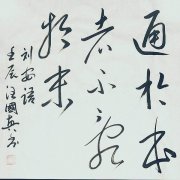 通於本
者不亂
於末
刘安語
壬辰汪國真書